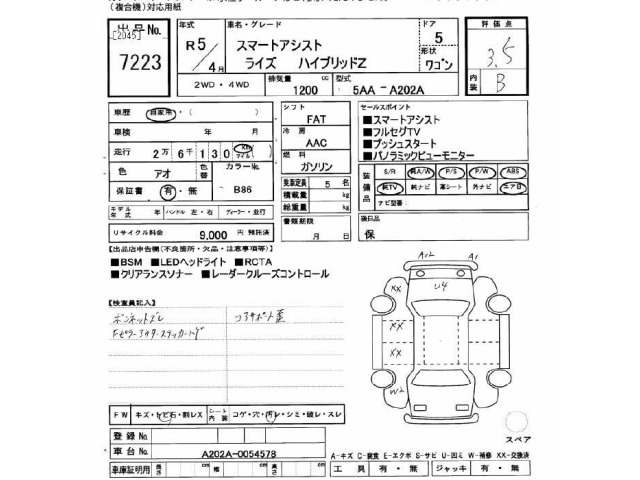 (複合機)対応用紙
出品No.
[2045]
7223
年式
R5/4月
車名・グレード
スマートアシスト
ライズ ハイブリッドZ
ドア
5
ワゴン
評価点
3.5
内装
B
2WD・4WD
排気量
1200
cc
型式
5AA-A202A
車歴
自家用・( )
車検
年 月
走行
2万6千130
Km
マイル
色
アオ
色替
カラーNo.
B86
保証書
有・無
モデル年式
年
ハンドル 左・右
ディーラー・並行
リサイクル料金
9,000 円 預託済
シフト
FAT
冷房
AAC
燃料
ガソリン
乗車定員
5 名
積載量
kg
総重量
kg
書類期限
月 日
セールスポイント
■スマートアシスト
■フルセグTV
■プッシュスタート
■パノラミックビューモニター
装備品
S/R
純A/W
P/S
P/W
ABS
純TV
純ナビ
革シート
外ナビ
エアB
ナビ型番:
後日品
保
【出品店申告欄(不良箇所・欠品・注意事項等)】
■BSM ■LEDヘッドライト ■RCTA
■クリアランスソナー ■レーダークルーズコントロール
【検査員記入】
ボンネットズレ
コアサポート歪
AU2
A1
U4
XX
XX
XX
W2
FW
キズ・トビ石・割レX
シート内装
コゲ・穴・汚レ・シミ・破レ・スレ
登録No.
車台No.
A202A-0054578
車庫証明用
長さ
cm
幅
cm
高さ
cm
スペア
A-キズ C-腐食 E-エクボ S-サビ U-凹ミ W-補修 XX-交換済
工具
有・無
ジャッキ
有・無